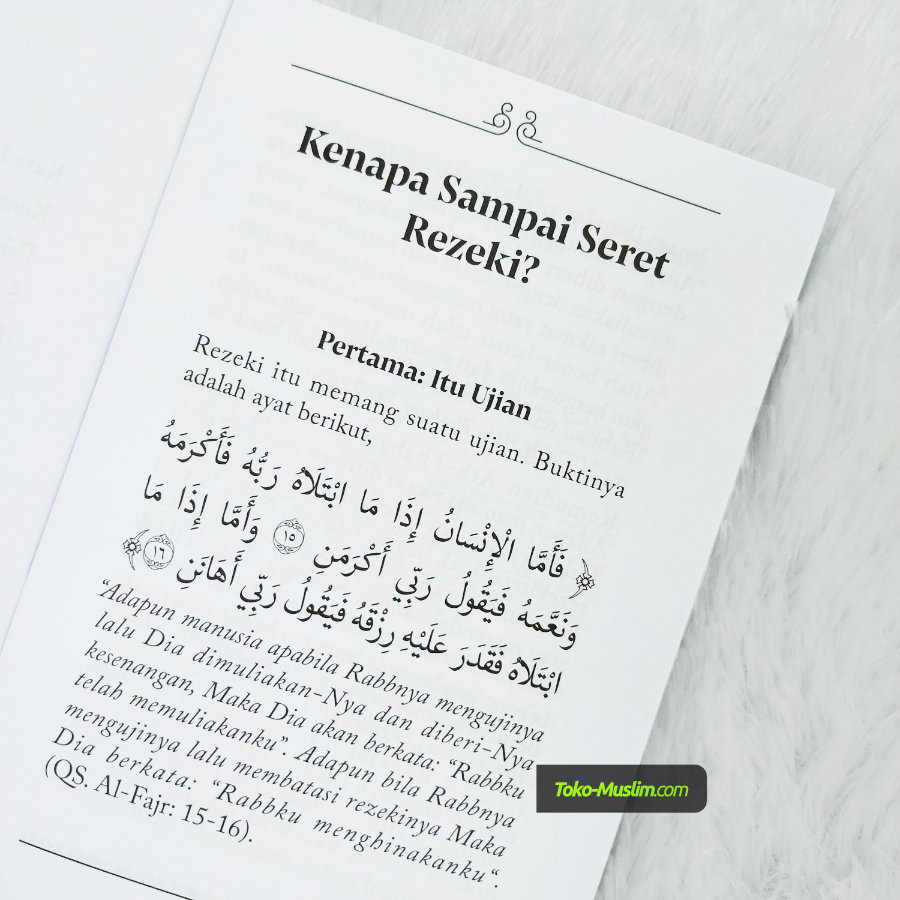 Kenapa Sampai Seret
Rezeki?
Pertama: Itu Ujian
Rezeki itu memang suatu ujian. Buktinya
adalah ayat berikut,
﴿ فَأَمَّا الْإِنْسَانُ إِذَا مَا ابْتَلَاهُ رَبُّهُ فَأَكْرَمَهُ
وَنَعَّمَهُ فَيَقُولُ رَبِّي أَكْرَمَنِ ١٥ وَأَمَّا إِذَا مَا
ابْتَلَاهُ فَقَدَرَ عَلَيْهِ رِزْقَهُ فَيَقُولُ رَبِّي أَهَانَنِ ١٦ ﴾
“Adapun manusia apabila Rabbnya mengujinya
lalu Dia dimuliakan-Nya dan diberi-Nya
kesenangan, Maka Dia akan berkata: “Rabbku
telah memuliakanku”. Adapun bila Rabbnya
mengujinya lalu membatasi rezekinya Maka
Dia berkata: “Rabbku menghinakanku“.
(QS. Al-Fajr: 15-16).
Toko-Muslim.com